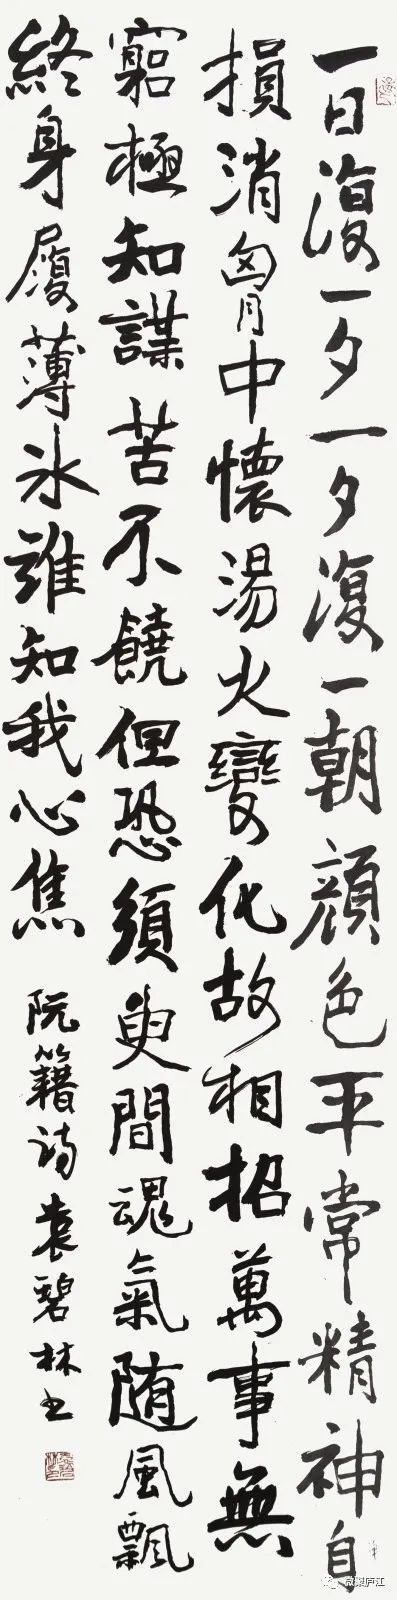 一日復一夕一夕復一朝顔色平常精神自
損消胷中懷湯火變化故相招萬事無
窮極知謀苦不饒但恐須臾間魂氣随風飄
終身履薄冰誰知我心焦 阮籍诗袁碧林书
庐江